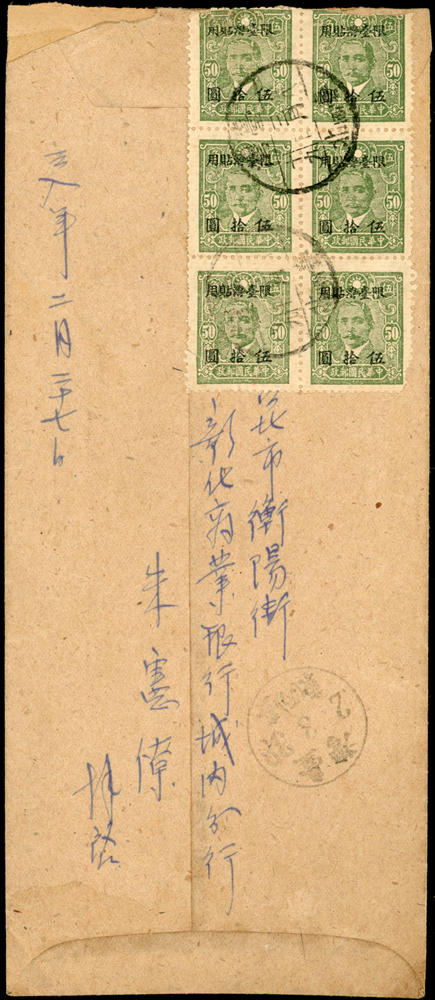 限臺灣貼用
50
50
伍拾圓
限臺灣貼用
50
50
伍拾圓
限臺灣貼用
50
50
伍拾圓
中華民國郵政
限臺灣貼用
50
50
伍拾圓
中華民國郵政
限臺灣貼用
50
50
伍拾圓
中華民國郵政
限臺灣貼用
50
50
伍拾圓
中華民國郵政
北市衡陽街
彰化商業銀行城內分行
朱
拜啓
年二月二十七日